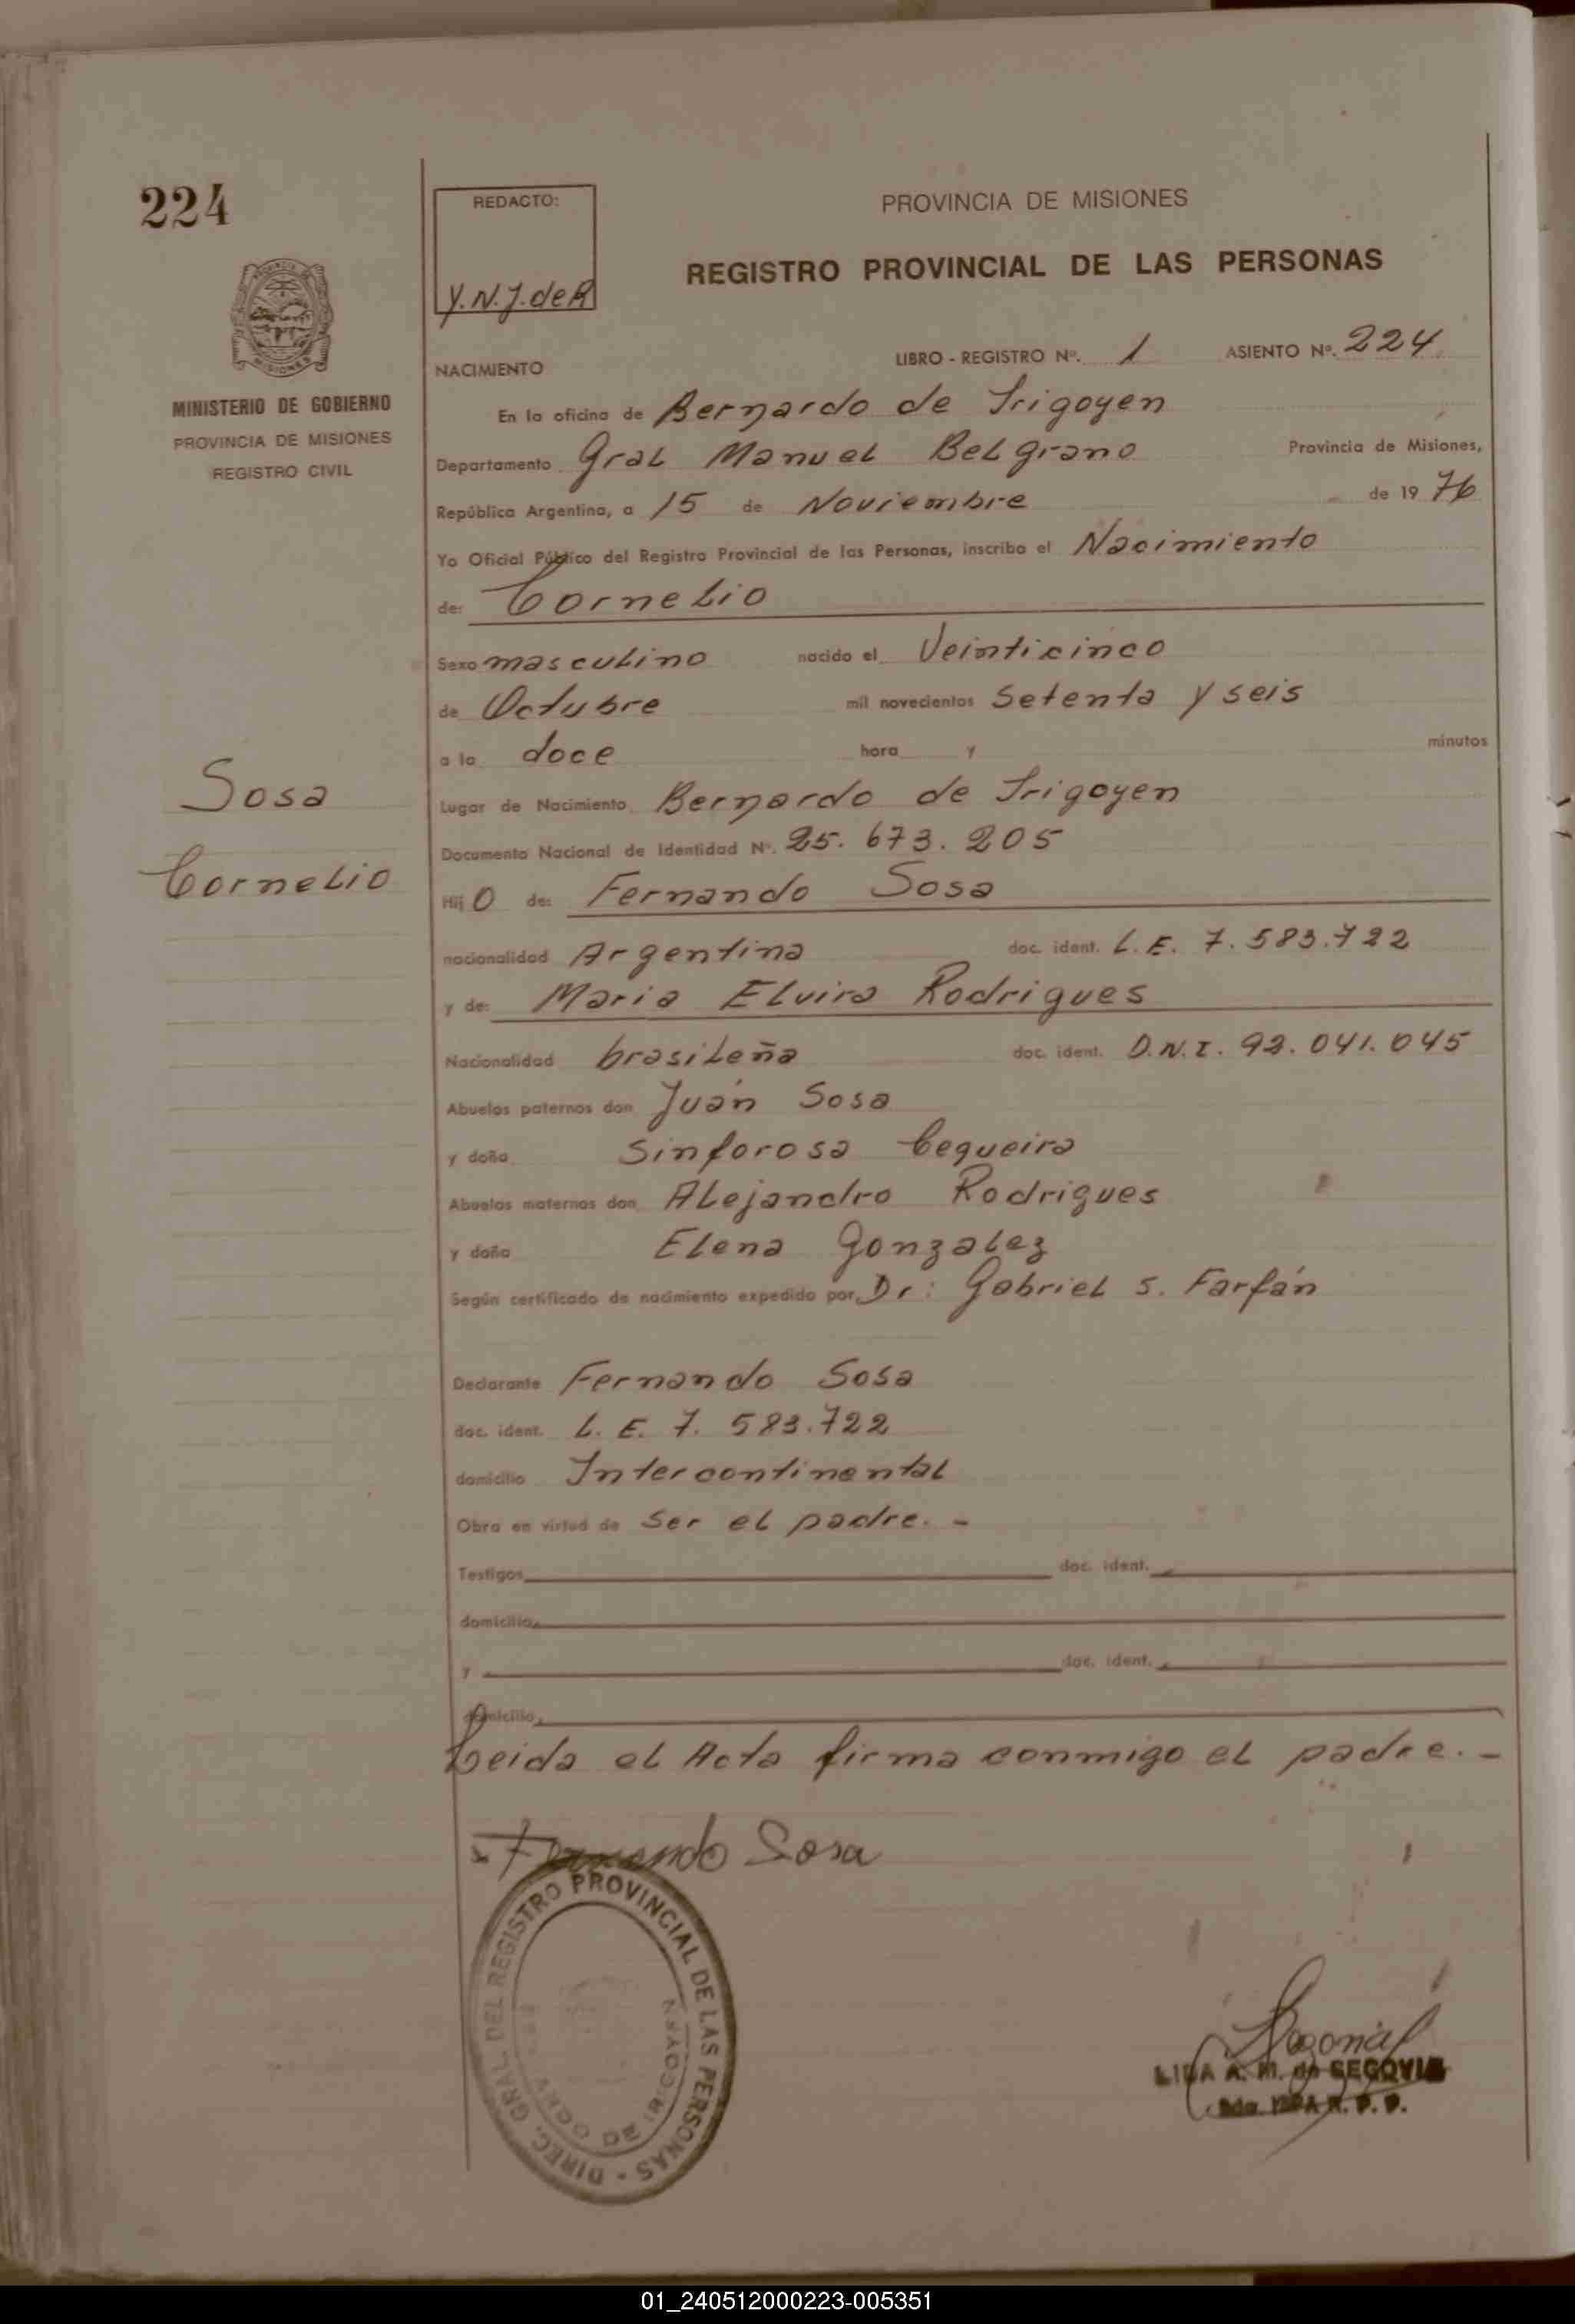 224
REDACTO:
Y.N.J. de R
PROVINCIA DE MISIONES
REGISTRO PROVINCIAL DE LAS PERSONAS
MINISTERIO DE GOBIERNO
PROVINCIA DE MISIONES
REGISTRO CIVIL
NACIMIENTO
LIBRO - REGISTRO Nº. 1 ASIENTO Nº. 224
En la oficina de Bernardo de Irigoyen
Departamento Gral Manuel Belgrano Provincia de Misiones,
República Argentina, a 15 de Noviembre de 1976
Yo Oficial Público del Registro Provincial de las Personas, inscribo el Nacimiento
de: Cornelio
Sexo masculino nacido el Veinticinco
de Octubre mil novecientos Setenta y seis
a la doce hora y minutos
Sosa
Cornelio
Lugar de Nacimiento Bernardo de Irigoyen
Documento Nacional de Identidad Nº. 25.673.205
Hij O de: Fernando Sosa
nacionalidad Argentina doc. ident. L.E. 7.583.722
y de: Maria Elvira Rodrigues
Nacionalidad brasileña doc. ident. D.N.I. 92.041.045
Abuelos paternos don Juán Sosa
y doña Sinforosa Cequeira
Abuelos maternos don Alejandro Rodrigues
y doña Elena Gonzalez
Según certificado de nacimiento expedido por Dr: Gabriel S. Farfán
Declarante Fernando Sosa
doc. ident. L.E. 7.583.722
domicilio Intercontinental
Obra en virtud de Ser el padre.-
Testigos doc. ident.
domicilio
y doc. ident.
domicilio
Leida el Acta firma conmigo el padre.-
Fernando Sosa
DIREC. GRAL. DEL REGISTRO PROVINCIAL DE LAS PERSONAS
DO DE IRIGOYEN
LIDA A. M. de SEGOVIA
01_240512000223-005351